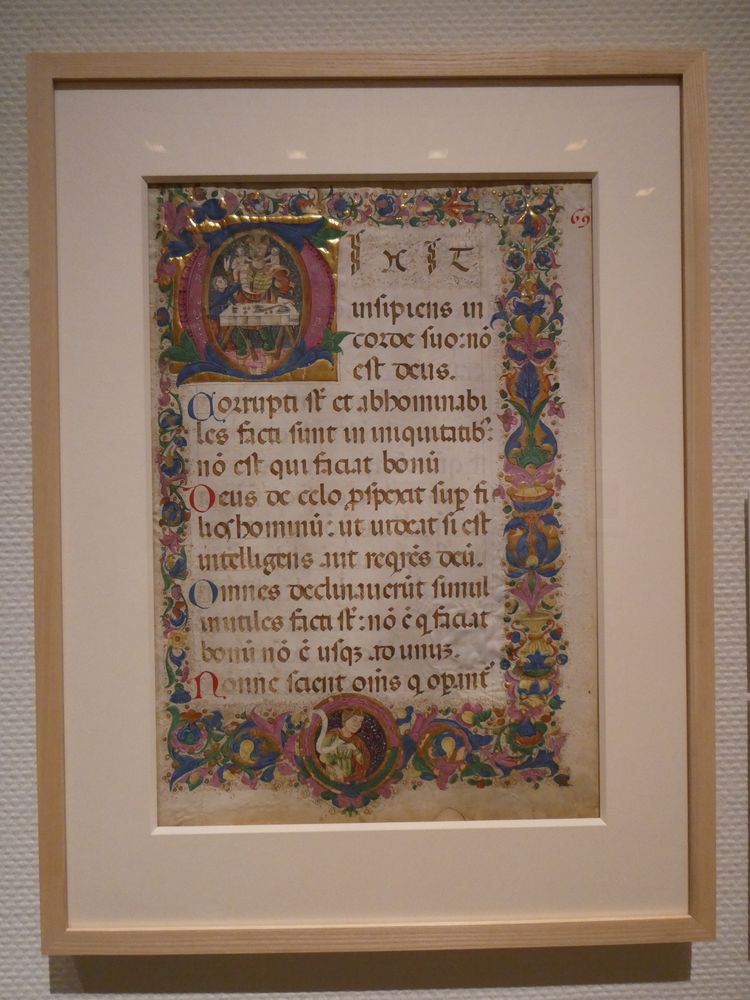 69
DIXIT
insipiens in
corde suo: nō
est deus.
Corrupti st̄ et abhominabi
les facti sunt in iniquitatib᷒:
nō est qui faciat bonū
Deus de celo ꝓspexit suꝑ fi
lios hominū: ut uideat si est
intelligens aut reqrēs deū.
Omnes declinauerūt simul
inutiles facti st̄: nō ē q faciat
bonū nō ē usqꝫ ad unuꝫ.
Nonne scient om̄s q opant᷒